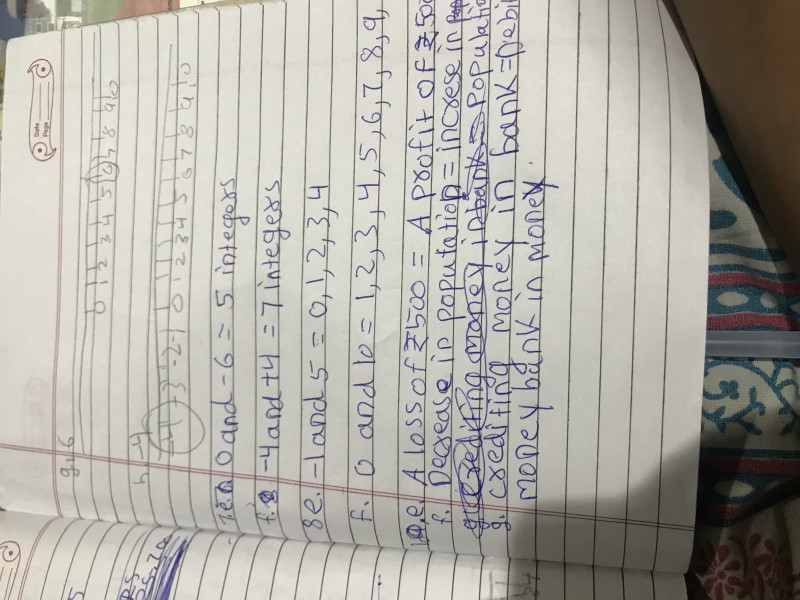 Date
Page
g. 6
0 1 2 3 4 5 6 7 8 9 10
h. -4
-4 -3 -2 -1 0 1 2 3 4 5 6 7 8 9 10
7.e. 0 and -6 = 5 integers
f. -4 and +4 = 7 integers
8 e. -1 and 5 = 0, 1, 2, 3, 4
f. 0 and 10 = 1, 2, 3, 4, 5, 6, 7, 8, 9,
10.e. A loss of ₹500 = A profit of ₹500
f. Decrease in population = increse in
g. crediting money in bank = Population
g. crediting money in bank = Debi
money bank in money.